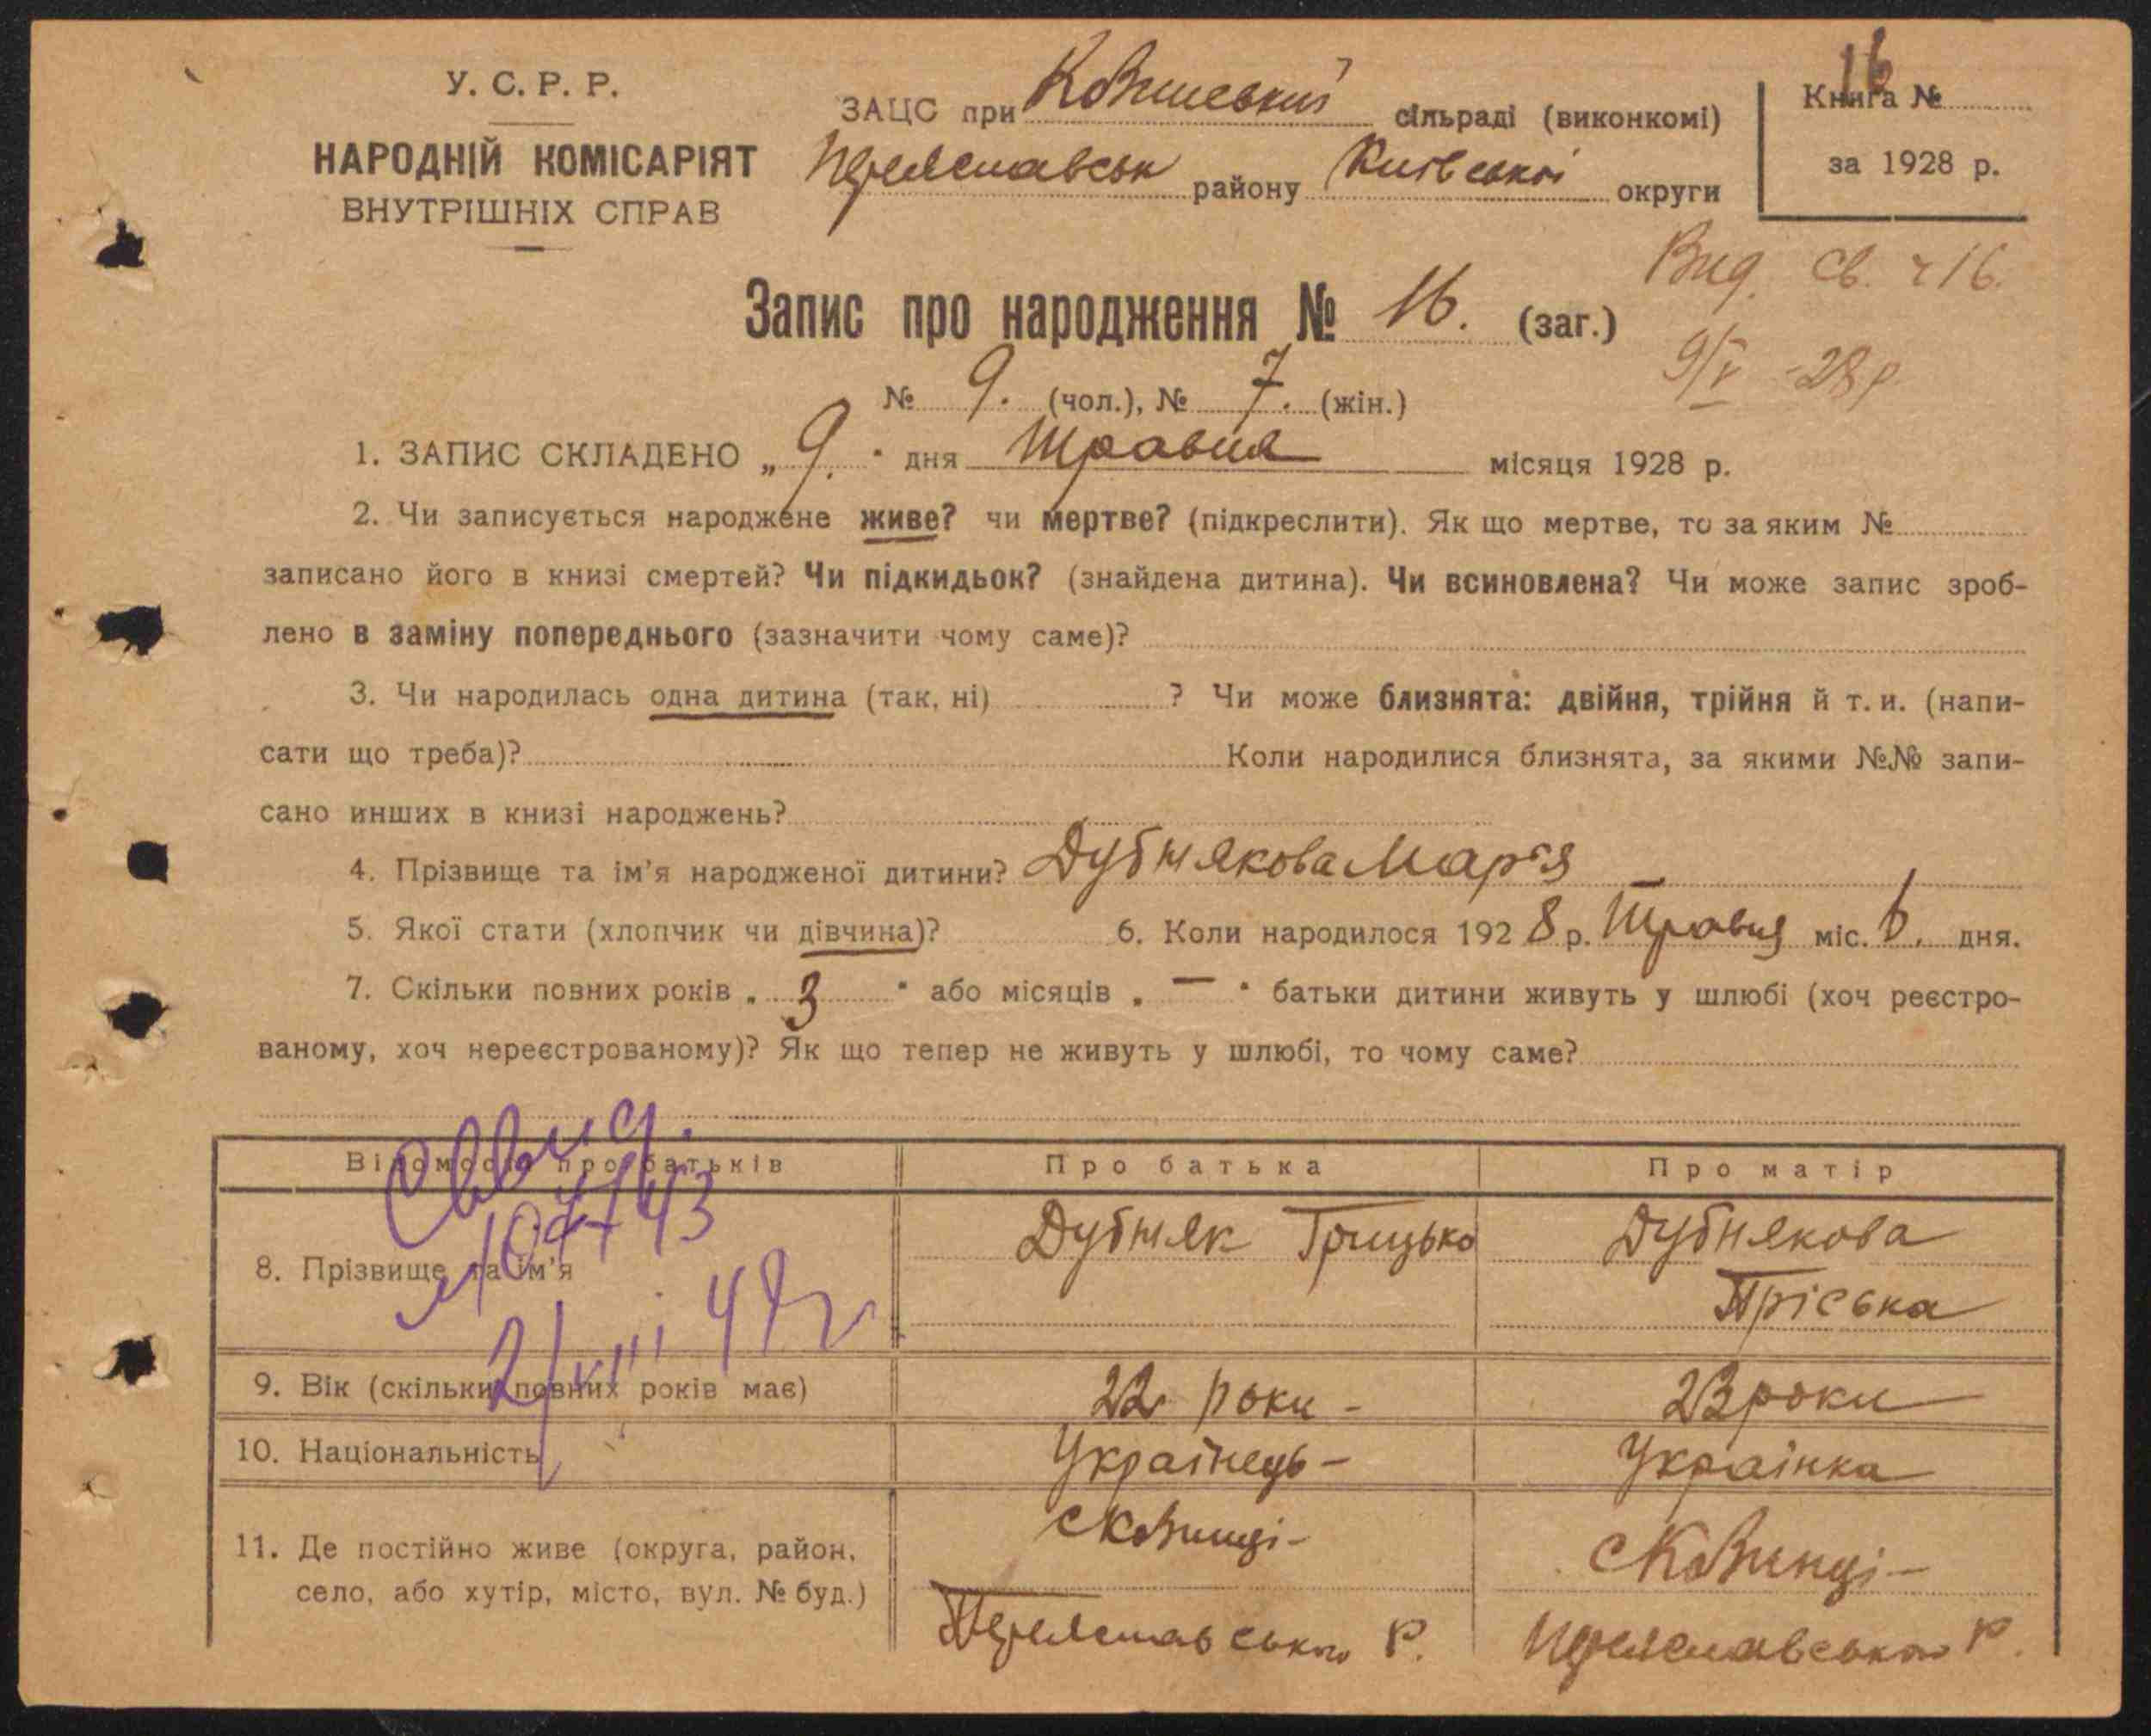 16
У. С. Р. Р.
НАРОДНІЙ КОМІСАРІЯТ
ВНУТРІШНІХ СПРАВ
ЗАЦС при сільраді (виконкомі)
району Київської округи
Книга №
за 1928 р.
Вид. св. ч 16.
9/V -28 р.
Запис про народження № 16. (заг.)
№ 9. (чол.), № 7. (жін.)
1. ЗАПИС СКЛАДЕНО „ 9. " дня Травня місяця 1928 р.
2. Чи записується народжене живе? чи мертве? (підкреслити). Як що мертве, то за яким №
записано його в книзі смертей? Чи підкидьок? (знайдена дитина). Чи всиновлена? Чи може запис зроб-
лено в заміну попереднього (зазначити чому саме)?
3. Чи народилась одна дитина (так, ні) ? Чи може близнята: двійня, трійня й т. и. (напи-
сати що треба)? Коли народилися близнята, за якими №№ запи-
сано инших в книзі народжень?
4. Прізвище та ім'я народженої дитини? Дубнякова Мар'я
5. Якої стати (хлопчик чи дівчина)? 6. Коли народилося 1928 р. Травня міс. 6. дня.
7. Скільки повних років „ 3 " або місяців „ — " батьки дитини живуть у шлюбі (хоч реєстро-
ваному, хоч нереєстрованому)? Як що тепер не живуть у шлюбі, то чому саме?
Відомости про батьків Про батька Про матір
8. Прізвище та ім'я Дубняк Грицько Дубнякова
Пріська
9. Вік (скільки повних років має) 22 роки - 23 роки
10. Національність Українець - Українка
11. Де постійно живе (округа, район,
село, або хутір, місто, вул. № буд.)
Переяславського Р. Переяславського Р.